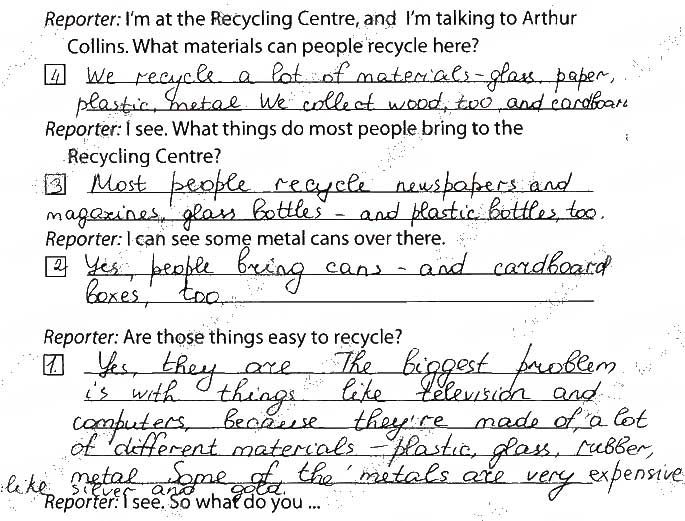 Reporter: I'm at the Recycling Centre, and I'm talking to Arthur
Collins. What materials can people recycle here?
4 We recycle a lot of materials - glass, paper,
plastic, metal. We collect wood, too, and cardboar
Reporter: I see. What things do most people bring to the
Recycling Centre?
3 Most people recycle newspapers and
magazines, glass bottles - and plastic bottles, too.
Reporter: I can see some metal cans over there.
2 Yes, people bring cans - and cardboard
boxes, too.
Reporter: Are those things easy to recycle?
1. Yes, they are. The biggest problem
is with things like television and
computers, because they're made of a lot
of different materials - plastic, glass, rubber,
metal. Some of the metals are very expensive
like silver and gold.
Reporter: I see. So what do you ...